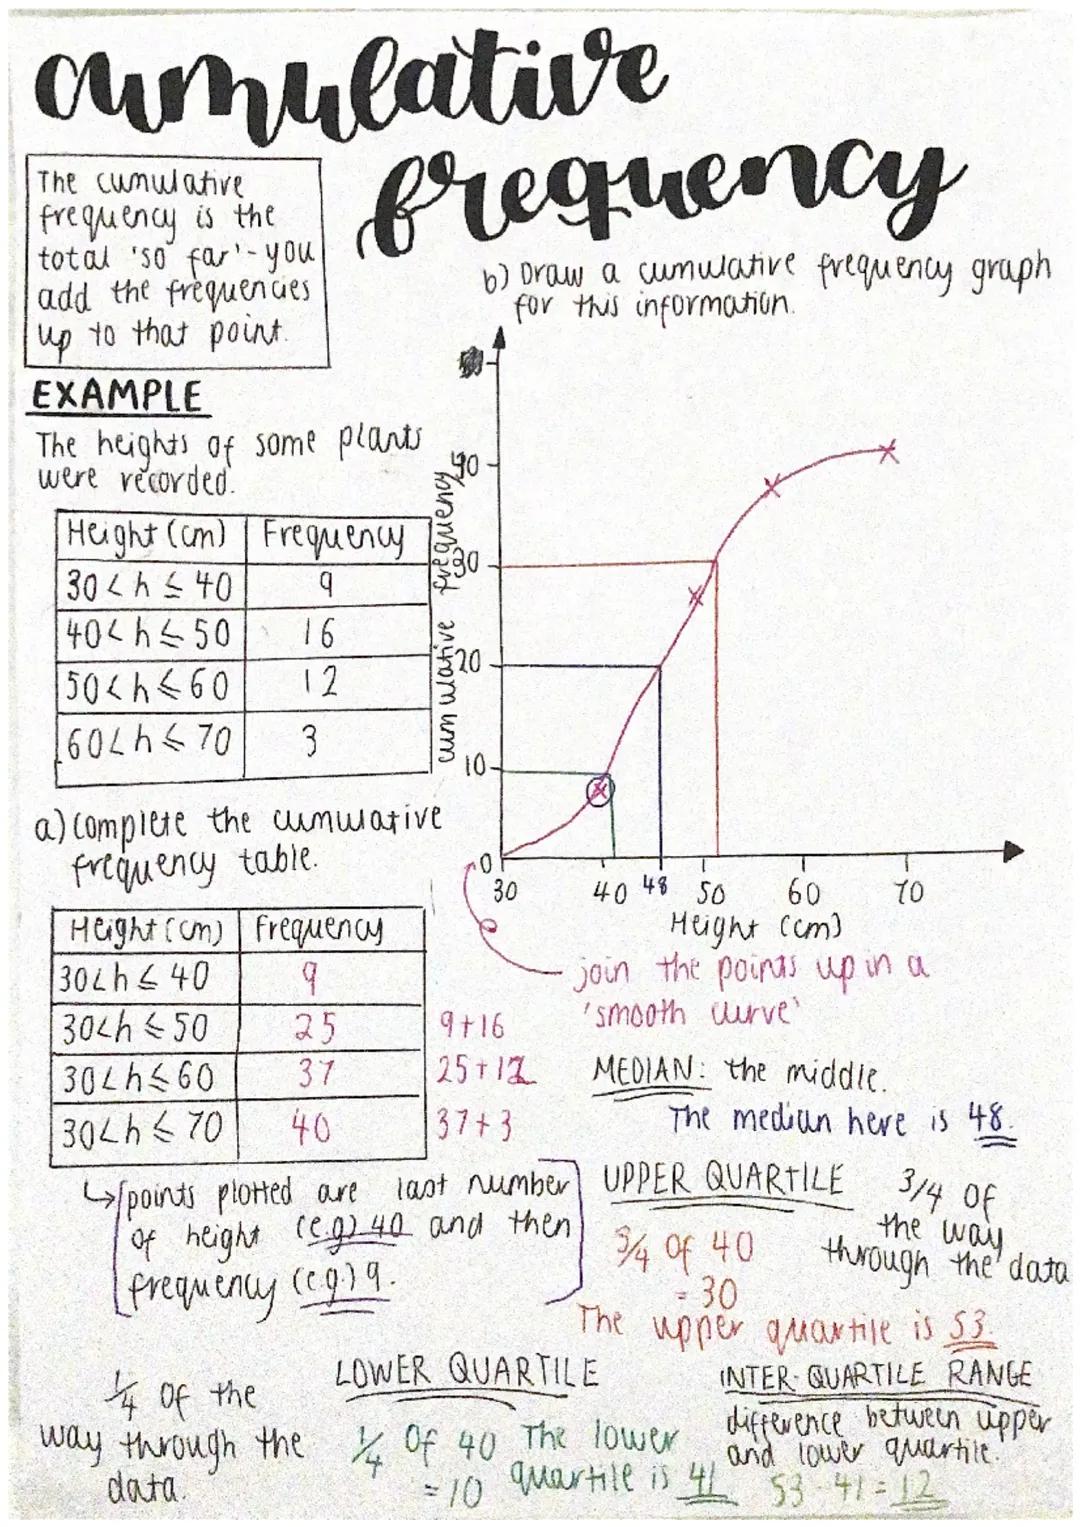 cumulative
frequency
The cumulative
frequency is the
total 'so far' - you
add the frequencies
up to that point.
EXAMPLE
The heights of some plants
were recorded.
Height (cm) Frequency
30 < h ≤ 40 9
40 < h ≤ 50 16
50 < h ≤ 60 12
60 < h ≤ 70 3
a) Complete the cumulative
frequency table.
Height (cm) Frequency
30 < h ≤ 40 9
30 < h ≤ 50 25 9+16
30 < h ≤ 60 37 25+12
30 < h ≤ 70 40 37+3
↳ points plotted are last number
of height (e.g) 40 and then
frequency (e.g.) 9.
b) Draw a cumulative frequency graph
for this information.
cumulative frequency
40
30
20
10
0
30 40 48 50 60 70
Height (cm)
join the points up in a
'smooth curve'
MEDIAN: the middle.
The median here is 48.
UPPER QUARTILE 3/4 of
the way
through the data
3/4 of 40
= 30
The upper quartile is 53.
LOWER QUARTILE
1/4 of the
way through the
data.
1/4 of 40
= 10
The lower
quartile is 41
INTER-QUARTILE RANGE
difference between upper
and lower quartile.
53 - 41 = 12